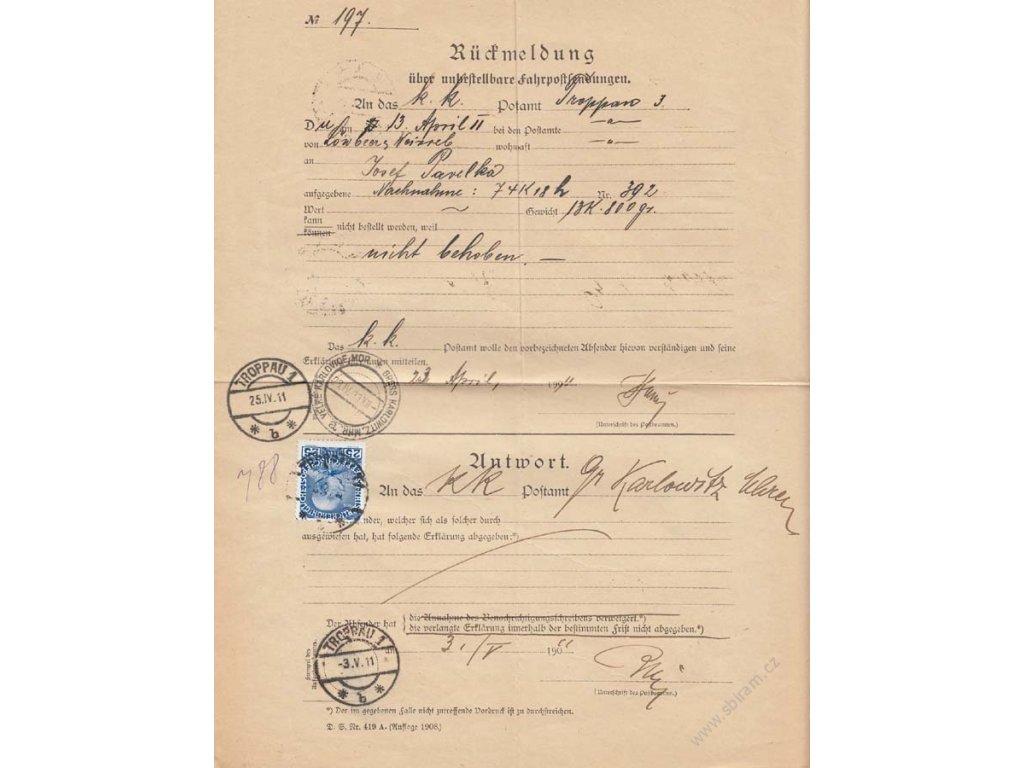 № 197.
Rückmeldung
über unbestellbare Fahrpostsendungen.
An das k. k. Postamt Troppau 3.
Die am 13. April 11 bei den Postamte
von wohnhaft
an Josef Pavelka
aufgegebene Nachnahme: 74K 18h Nr. 392
Wert Gewicht 13K. 800gr.
kann
können nicht bestellt werden, weil
nicht behoben. —
Das k. k. Postamt wolle den vorbezeichneten Absender hievon verständigen und seine
Erklärung mitteilen.
TROPPAU 1
25.IV.11
* b *
VELKÉ KARLOWICE, MOR. GROSS KARLOWITZ, MHR.
23 April, 1911
(Unterschrift des Postbeamten.)
Antwort.
788
An das kk Postamt Gr Karlowitz
nder, welcher sich als solcher durch
ausgewiesen hat, hat folgende Erklärung abgegeben:*)
Der Absender hat
die Annahme des Benachrichtigungsschreibens verweigert.*)
die verlangte Erklärung innerhalb der bestimmten Frist nicht abgegeben.*)
3./V 1911
TROPPAU 1
-3.V.11
* b *
(Unterschrift des Postbeamten.)
*) Der im gegebenen Falle nicht zutreffende Vordruck ist zu durchstreichen.
D. S. Nr. 419 A. (Auflage 1908.)
www.sbiram.cz